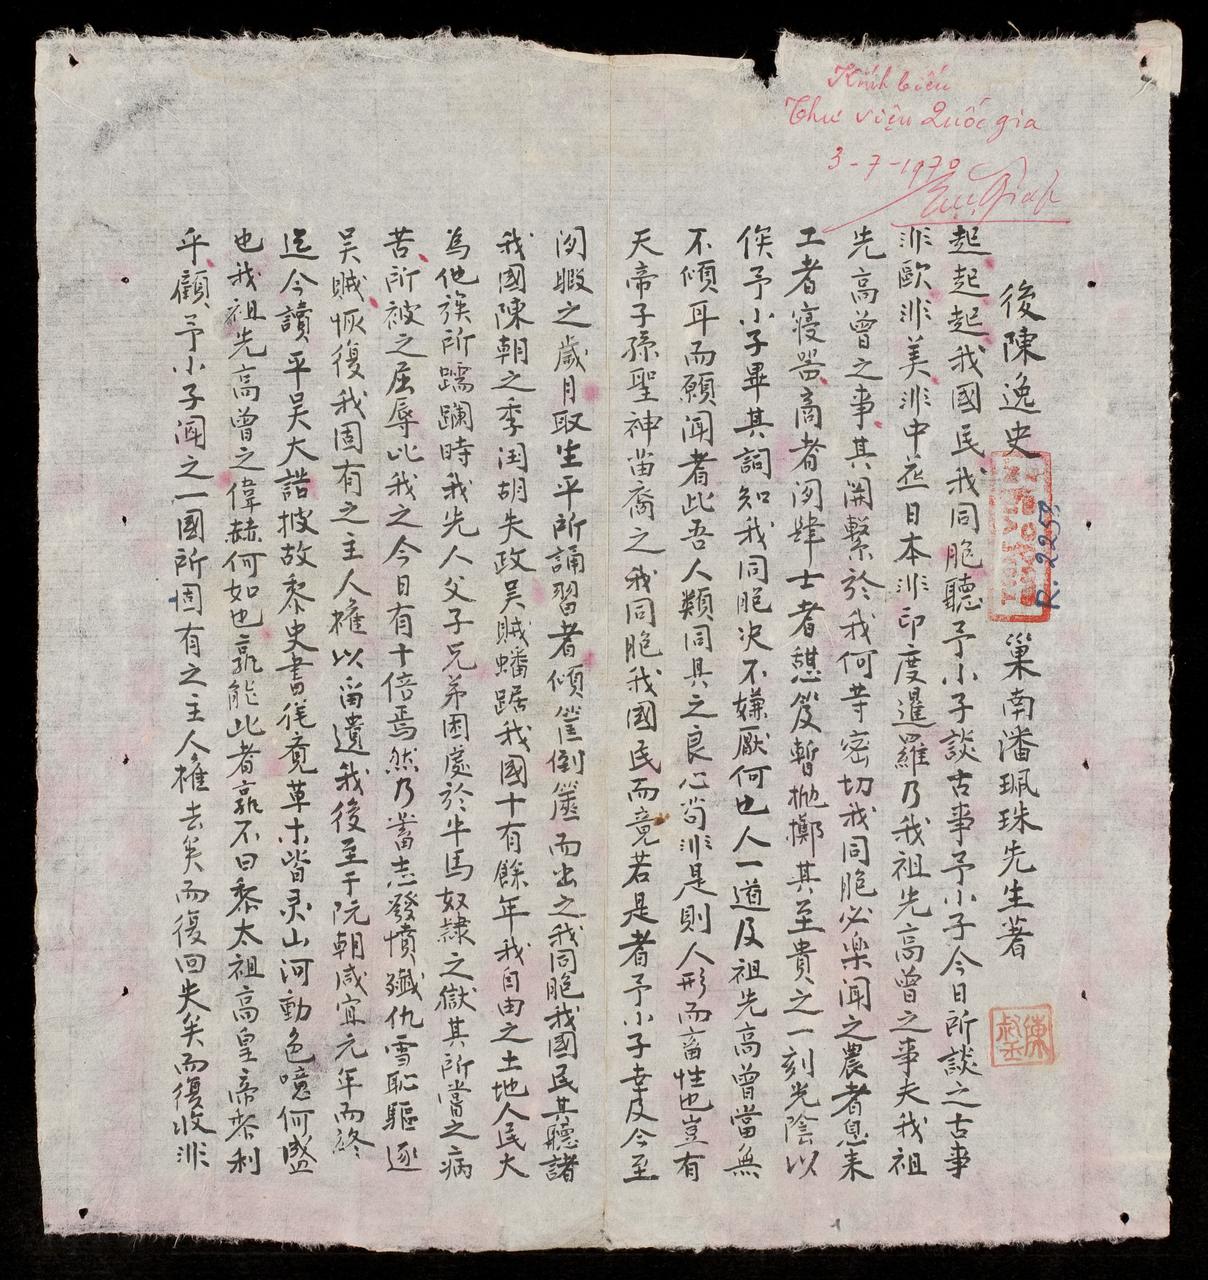 Kính biếu
Thư viện Quốc gia
3-7-1970
後陳逸史
R.2253
巢南潘珮珠先生著
起起起我國民我同胞聽予小子談古事予小子今日所談之古事
非歐非美非中並日本非印度暹羅乃我祖先高曾之事夫我祖
先高曾之事其開繫於我何等密切我同胞必樂聞之農者息耒
工者寢器商者闭肆士者憇笈暫抛擲其至貴之一刻光陰以
俟予小子畢其詞知我同胞决不嫌厭何也人一道及祖先高曾當無
不傾耳而願闻者此吾人類同具之良心苟非是則人形而畜性也豈有
天帝子孫聖神苗裔之我同胞我國民而竟若是者予小子幸及今至
闭暇之歲月取生平所誦習者傾筐倒篋而出之我同胞我國民其聽諸
我國陳朝之季闰胡失政吴賊蟠踞我國十有餘年我自由之土地人民大
為他族所蹂躏時我先人父子兄弟困處於牛馬奴隸之獄其所嘗之病
苦所被之屈辱比我之今日有十倍焉然乃蓄志發憤殲仇雪恥驅逐
吴賊恢復我固有之主人權以留遺我後至于阮朝咸宜元年而終
迄今讀平吴大誥披故黎史書徃竟草木皆灵山河動色噫何盛
也我祖先高曾之偉赫何如也孰能此者孰不曰黎太祖高皇帝黎利
乎顧予小子闻之一國所固有之主人權去矣而復回失矣而復收非